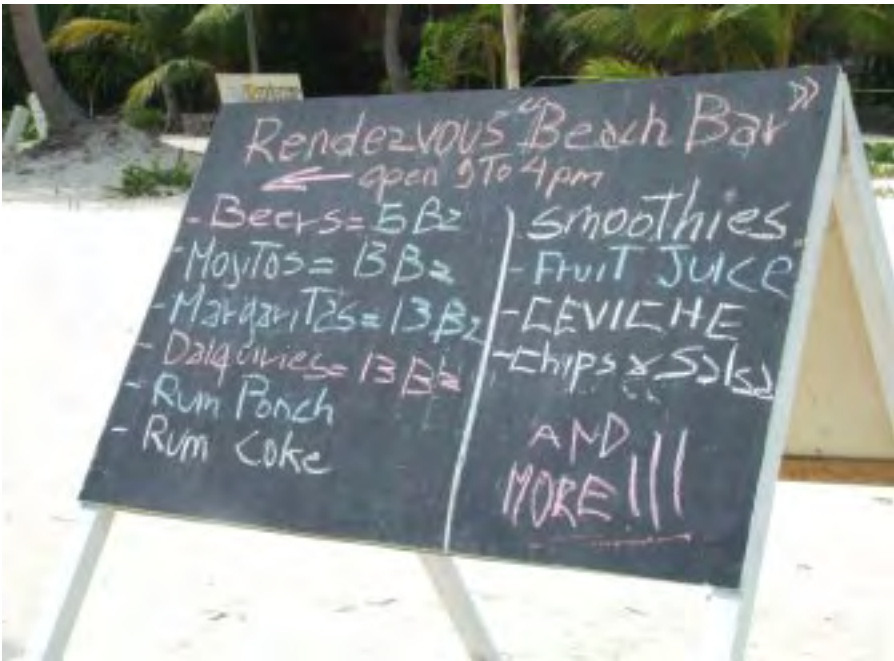 Rendezvous "Beach Bar"
open 9 To 4 pm
- Beers = 5 Bz
- MojiTos = 13 Bz
- MargariTas = 13 Bz
- Daiquiries = 13 Bz
- Rum Ponch
- Rum Coke
- smoothies
- FruiT JuiCe
- CEVICHE
- Chips & Salsa
AND
MORE!!!